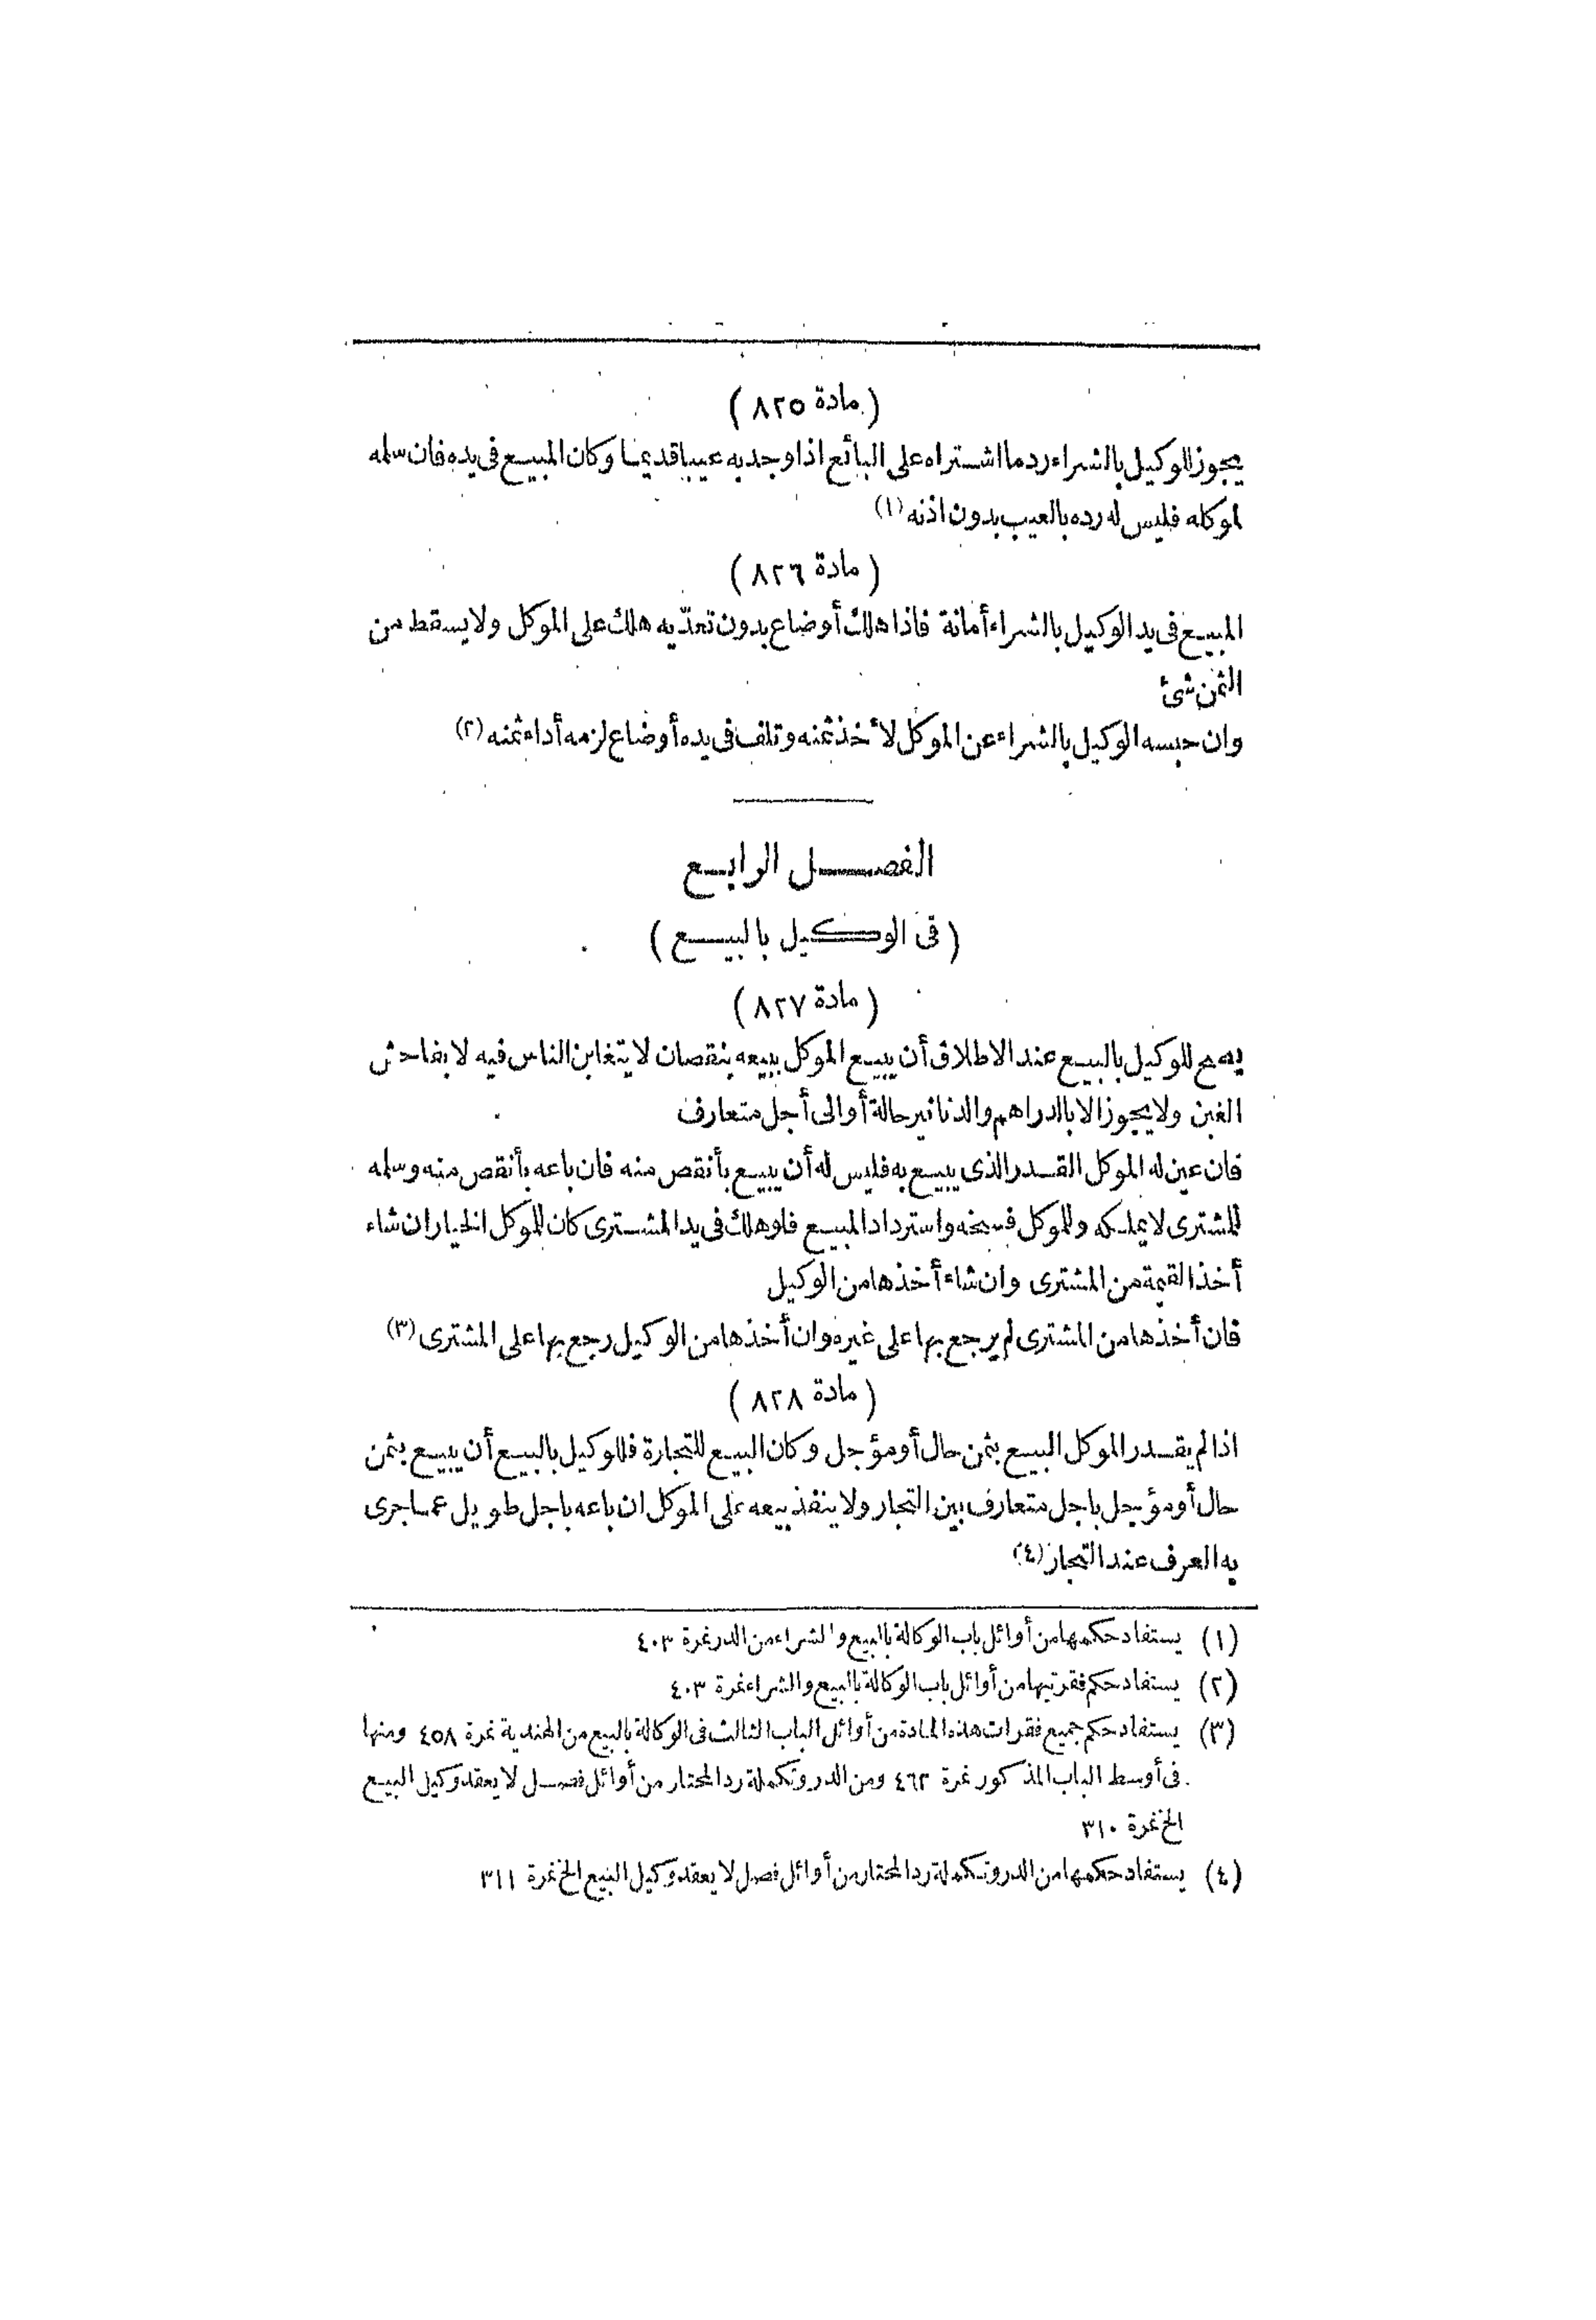 (مادة ٨٢٥)
يجوز للوكيل بالشراء رد ما اشتراه على البائع اذا وجد به عيبا قديما وكان المبيع فى يده فان سلمه
لموكله فليس له رده بالعيب بدون اذنه (١)
(مادة ٨٢٦)
المبيع فى يد الوكيل بالشراء أمانة فاذا هلك أو ضاع بدون تعدّيه هلك على الموكل ولا يسقط من
الثمن شئ
وان حبسه الوكيل بالشراء عن الموكل لأخذ ثمنه وتلف فى يده أو ضاع لزمه أداء ثمنه (٢)
الفصل الرابع
(فى الوكيل بالبيع)
(مادة ٨٢٧)
يصح للوكيل بالبيع عند الاطلاق أن يبيع الموكل ببيعه بنقصان لا يتغابن الناس فيه لا بفاحش
الغبن ولا يجوز الا بالدراهم والدنانير حالة أو الى أجل متعارف
فان عين له الموكل القدر الذى يبيع به فليس له أن يبيع بأنقص منه فان باعه بأنقص منه وسلمه
للمشترى لا يملكه وللموكل فسخه واسترداد المبيع فلو هلك فى يد المشترى كان للموكل الخيار ان شاء
أخذ القيمة من المشترى وان شاء أخذها من الوكيل
فان أخذها من المشترى لم يرجع بها على غيره وان أخذها من الوكيل رجع بها على المشترى (٣)
(مادة ٨٢٨)
اذا لم يقدر الموكل البيع بثمن حال أو مؤجل وكان البيع للتجارة فللوكيل بالبيع أن يبيع بثمن
حال أو مؤجل باجل متعارف بين التجار ولا ينفذ بيعه على الموكل ان باعه باجل طويل عما جرى
به العرف عند التجار (٤)
(١) يستفاد حكمها من أوائل باب الوكالة بالبيع والشراء من الدر نمرة ٤٠٣
(٢) يستفاد حكم فقرتيها من أوائل باب الوكالة بالبيع والشراء نمرة ٤٠٣
(٣) يستفاد حكم جميع فقرات هذه المادة من أوائل الباب الثالث فى الوكالة بالبيع من الهندية نمرة ٤٥٨ ومنها
فى أوسط الباب المذكور نمرة ٤٦٢ ومن الدر وتكملة رد المحتار من أوائل فصل لا يعقد وكيل البيع
الخ نمرة ٣١٠
(٤) يستفاد حكمها من الدر وتكملة رد المحتار من أوائل فصل لا يعقد وكيل البيع الخ نمرة ٣١١